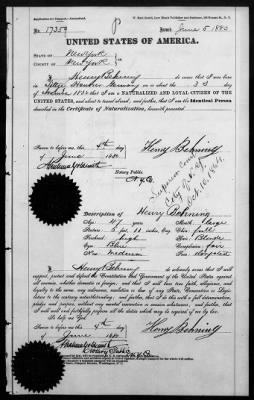 No. 17359
Issued June 5 1880
UNITED STATES OF AMERICA.
STATE OF New York
COUNTY OF New York
I, Henry Behning do swear that I was born in
Germany on the
day
of 1832 that I am a NATURALIZED AND LOYAL CITIZEN OF THE
UNITED STATES, and about to travel abroad; and further, that I am the Identical Person
described in the Certificate of Naturalization, herewith presented.
Sworn to before me this 4th day
of June 1880
Henry Behning
Notary Public
N.Y.Co.
Superior Court
City of N.Y.
Oct 16, 1861.
Description of Henry Behning
Age: 47 years
Mouth: Large
Stature: 5 feet 11 inches, Eng.
Chin: full
Forehead: high
Hair: Blonde
Eyes: Blue
Complexion: Fair
Nose: Medium
Face:
I, Henry Behning do solemnly swear that I will
support, protect and defend the Constitution and Government of the United States against all
enemies, whether domestic or foreign; and that I will bear true faith, allegiance and
loyalty to the same, any ordinance, resolution or law of any State, Convention or Legis-
lature to the contrary notwithstanding; and further, that I do this with a full determination,
pledge and purpose, without any mental reservation or evasion whatsoever; and further, that
I will well and faithfully perform all the duties which may be required of me by law.
So help me God.
Sworn to before me this 4th day
of June 1880
Henry Behning
Notary Public
N.Y.Co.